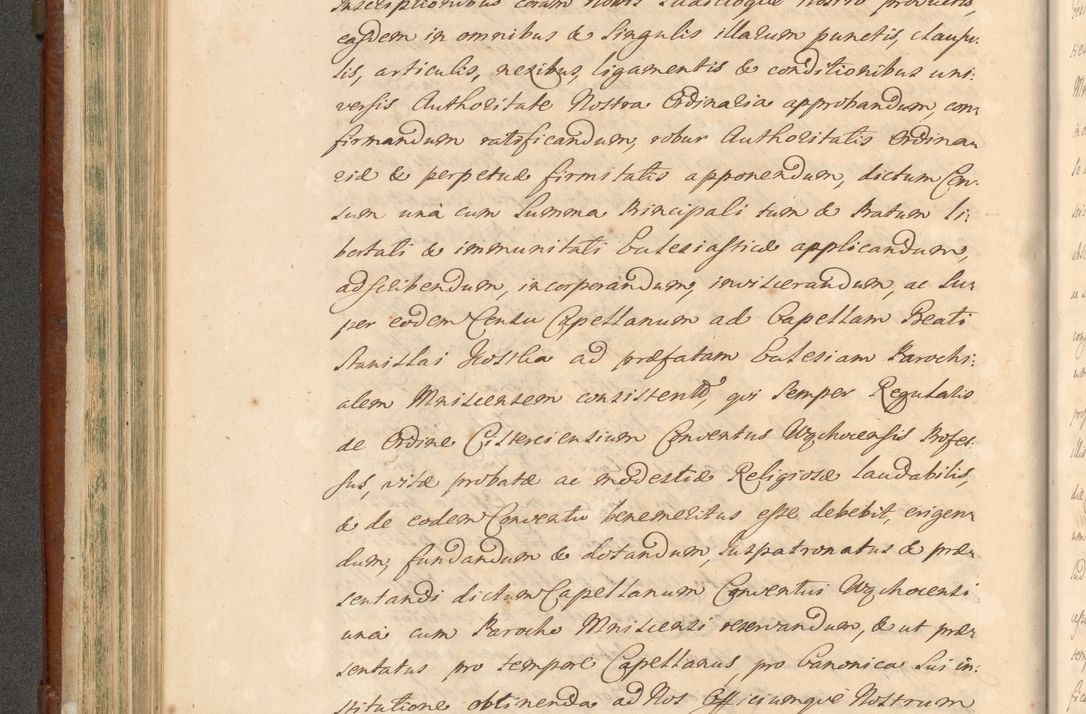 inscriptionibus coram nobis Judicioque nostro productis,
easdem in omnibus & singulis illarum punctis, clausu-
lis, articulis, nexibus, ligamentis & conditionibus uni-
versis Authoritate Nostra Ordinaria approbandum, con-
firmandum ratificandum, robur Authoritatis Ordina-
riæ & perpetuæ firmitatis apponendum, dictum Cen-
sum unà cum Summa Principali tum & Pratum li-
bertati & immunitati Ecclesiasticæ applicandum,
adscribendum, incorporandum, inviscerandum, ac su-
per eodem Censu Capellanum ad Capellam Beati
Stanislai Kostka ad præfatam Ecclesiam Parochi-
alem Mniscensem consistentem, qui semper Regularis
de Ordine Cisterciensium Conventus Wąchocensis Profes-
sus, vitæ probatæ ac modestiæ Religiosæ laudabilis,
& de eodem Conventu benemeritus esse debebit, erigen-
dum, fundandum & dotandum, juspatronatus & præ-
sentandi dictum Capellanum Conventui Wąchocensi
unà cum Parocho Mniscensi reservandum, & ut præ-
sentatus pro tempore Capellanus, pro Canonica sui in-
stitutione obtinenda ad Nos Officiumque Nostrum